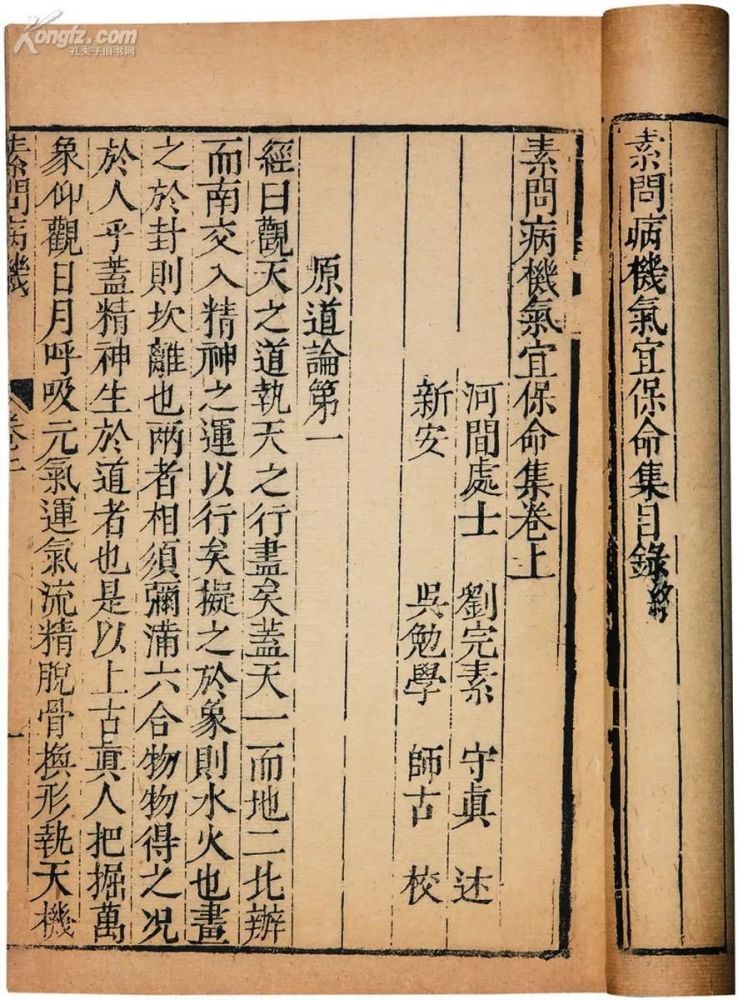 Kongfz.com
孔夫子旧书网
素問病機氣宜保命集目錄終
素問病機氣宜保命集卷上
河間處士　劉完素　守眞　述
新安　吳勉學　師古　校
原道論第一
經曰觀天之道執天之行盡矣蓋天一而地二北辦
而南交入精神之運以行矣擬之於象則水火也畫
之於封則坎離也兩者相須彌滿六合物物得之况
於人乎蓋精神生於道者也是以上古眞人把握萬
象仰觀日月呼吸元氣運氣流精脫骨換形執天機
素問病機
卷上
一